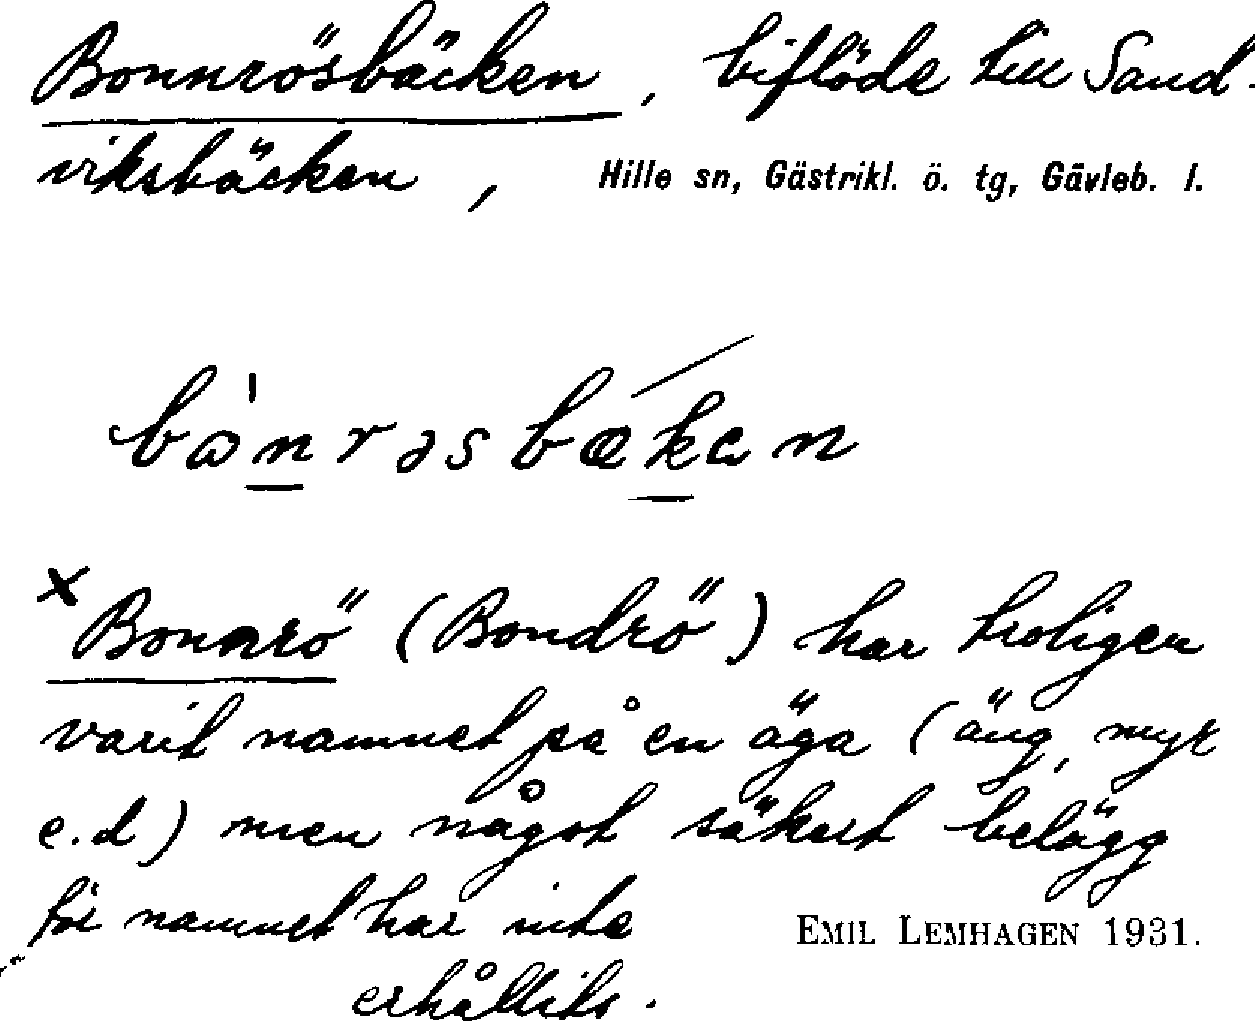 Bonnrösbäcken, biflöde till Sand-
viksbäcken, Hille sn, Gästrikl. ö. tg, Gävleb. l.
bὼnrəsbækən
x Bonnrö (Bondrö) har troligen
varit namnet på en äga (äng, myr
e.d) men något säkert belägg
för namnet har inte
EMIL LEMHAGEN 1931.
erhållits.